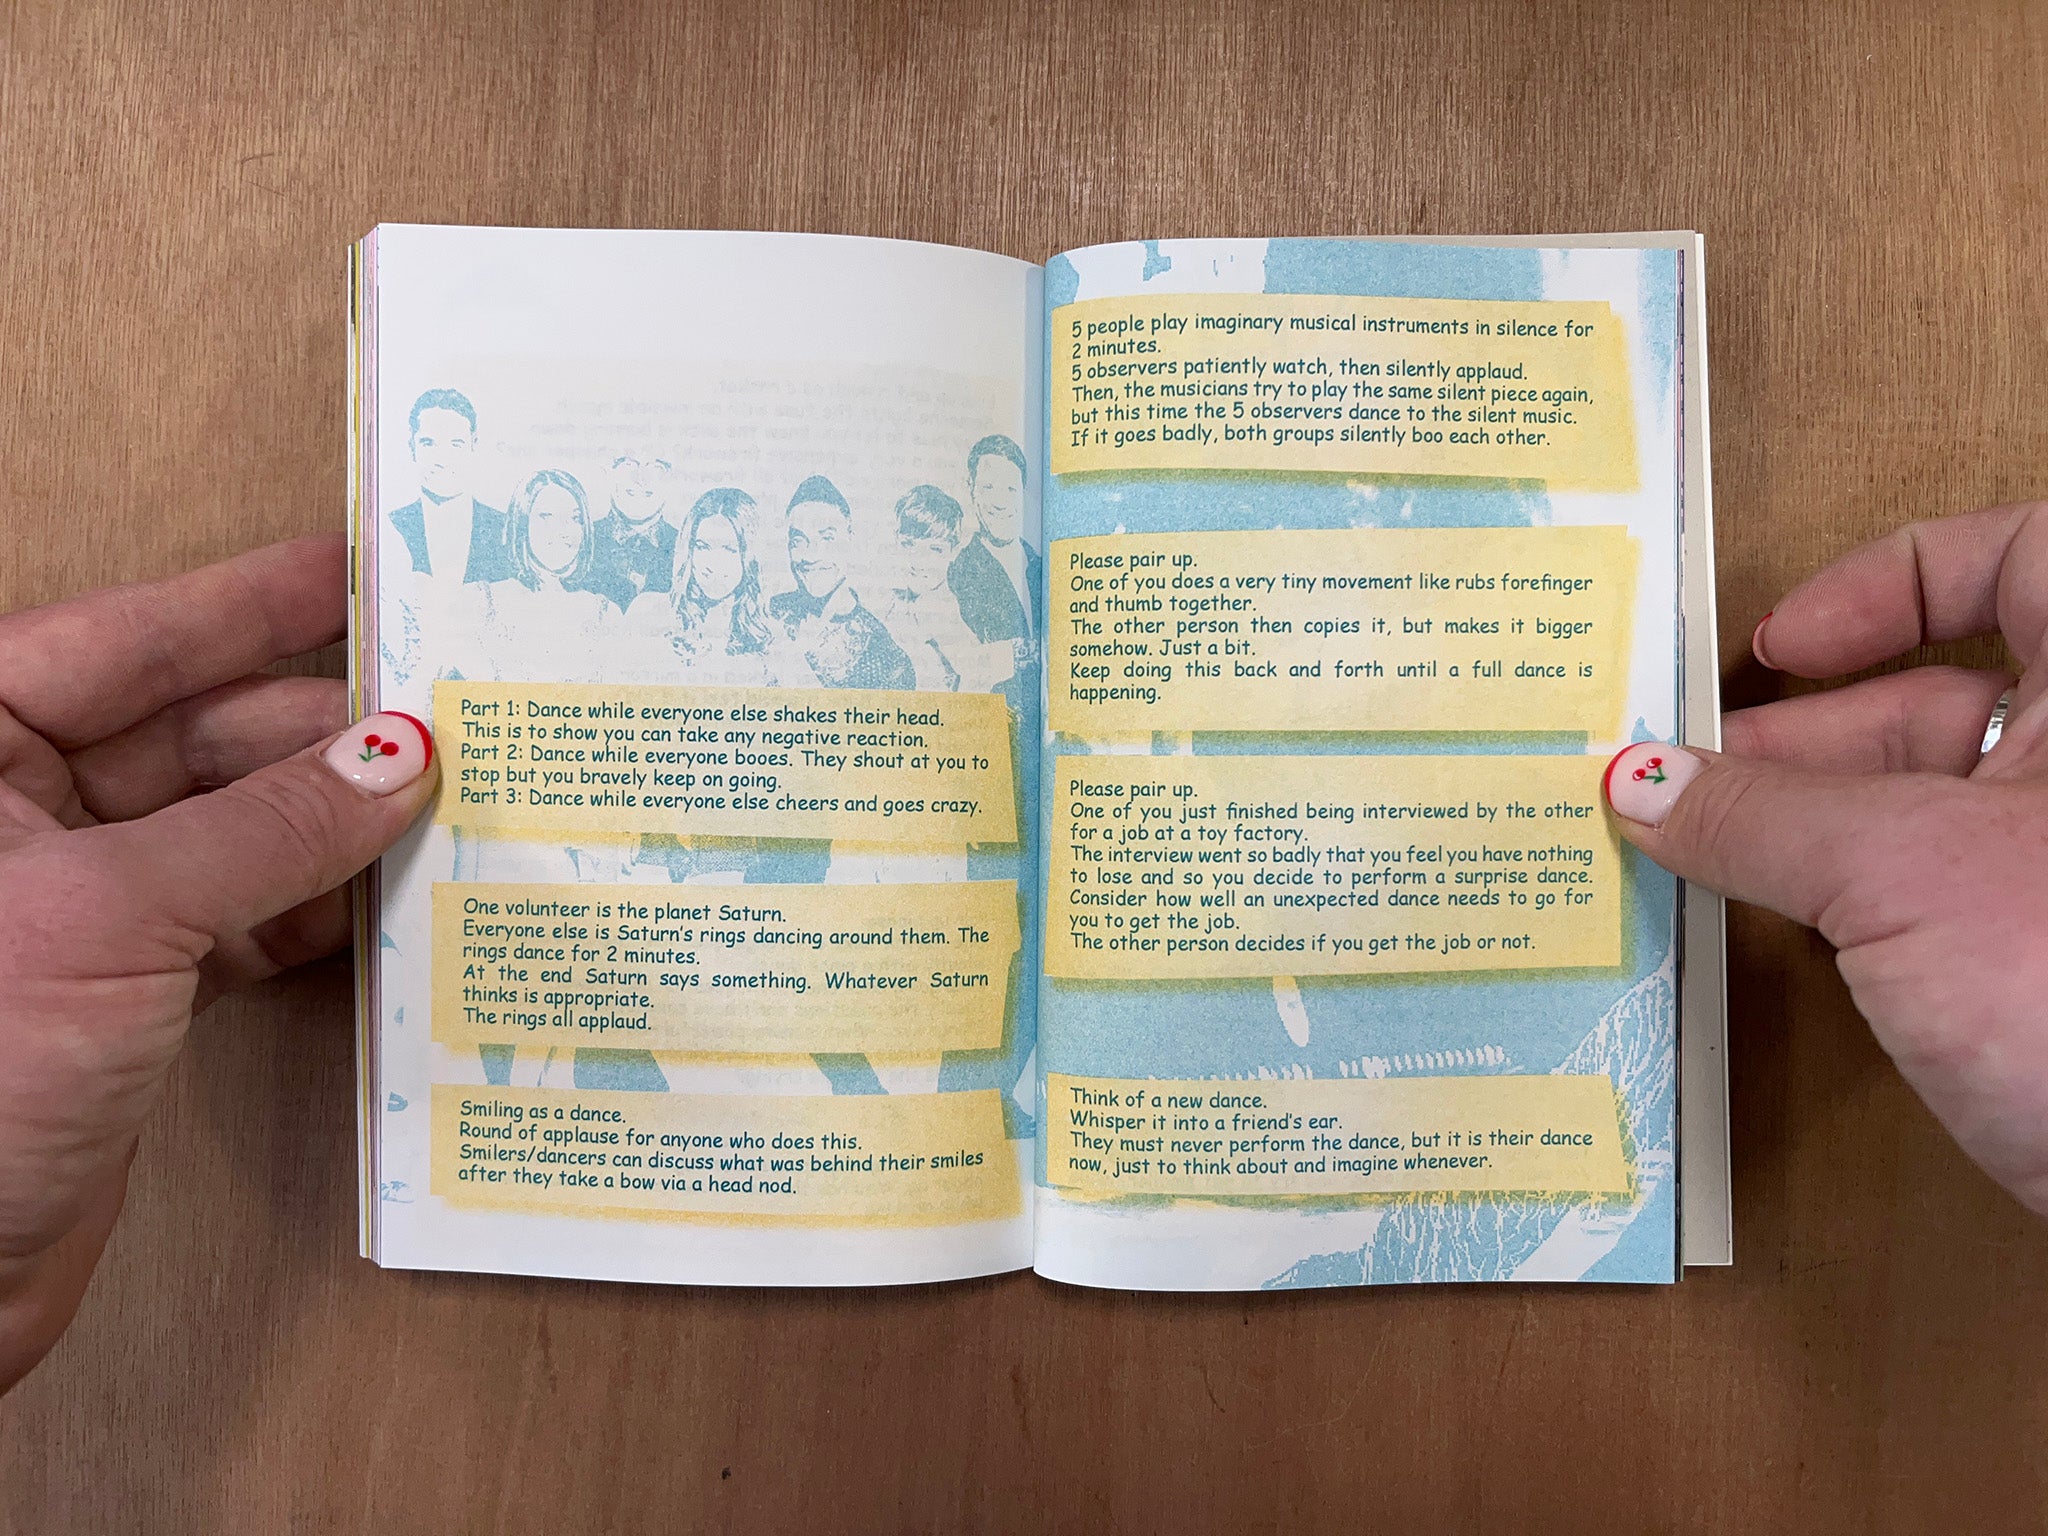 Part 1: Dance while everyone else shakes their head.
This is to show you can take any negative reaction.
Part 2: Dance while everyone booes. They shout at you to
stop but you bravely keep on going.
Part 3: Dance while everyone else cheers and goes crazy.
One volunteer is the planet Saturn.
Everyone else is Saturn's rings dancing around them. The
rings dance for 2 minutes.
At the end Saturn says something. Whatever Saturn
thinks is appropriate.
The rings all applaud.
Smiling as a dance.
Round of applause for anyone who does this.
Smilers/dancers can discuss what was behind their smiles
after they take a bow via a head nod.
5 people play imaginary musical instruments in silence for
2 minutes.
5 observers patiently watch, then silently applaud.
Then, the musicians try to play the same silent piece again,
but this time the 5 observers dance to the silent music.
If it goes badly, both groups silently boo each other.
Please pair up.
One of you does a very tiny movement like rubs forefinger
and thumb together.
The other person then copies it, but makes it bigger
somehow. Just a bit.
Keep doing this back and forth until a full dance is
happening.
Please pair up.
One of you just finished being interviewed by the other
for a job at a toy factory.
The interview went so badly that you feel you have nothing
to lose and so you decide to perform a surprise dance.
Consider how well an unexpected dance needs to go for
you to get the job.
The other person decides if you get the job or not.
Think of a new dance.
Whisper it into a friend's ear.
They must never perform the dance, but it is their dance
now, just to think about and imagine whenever.